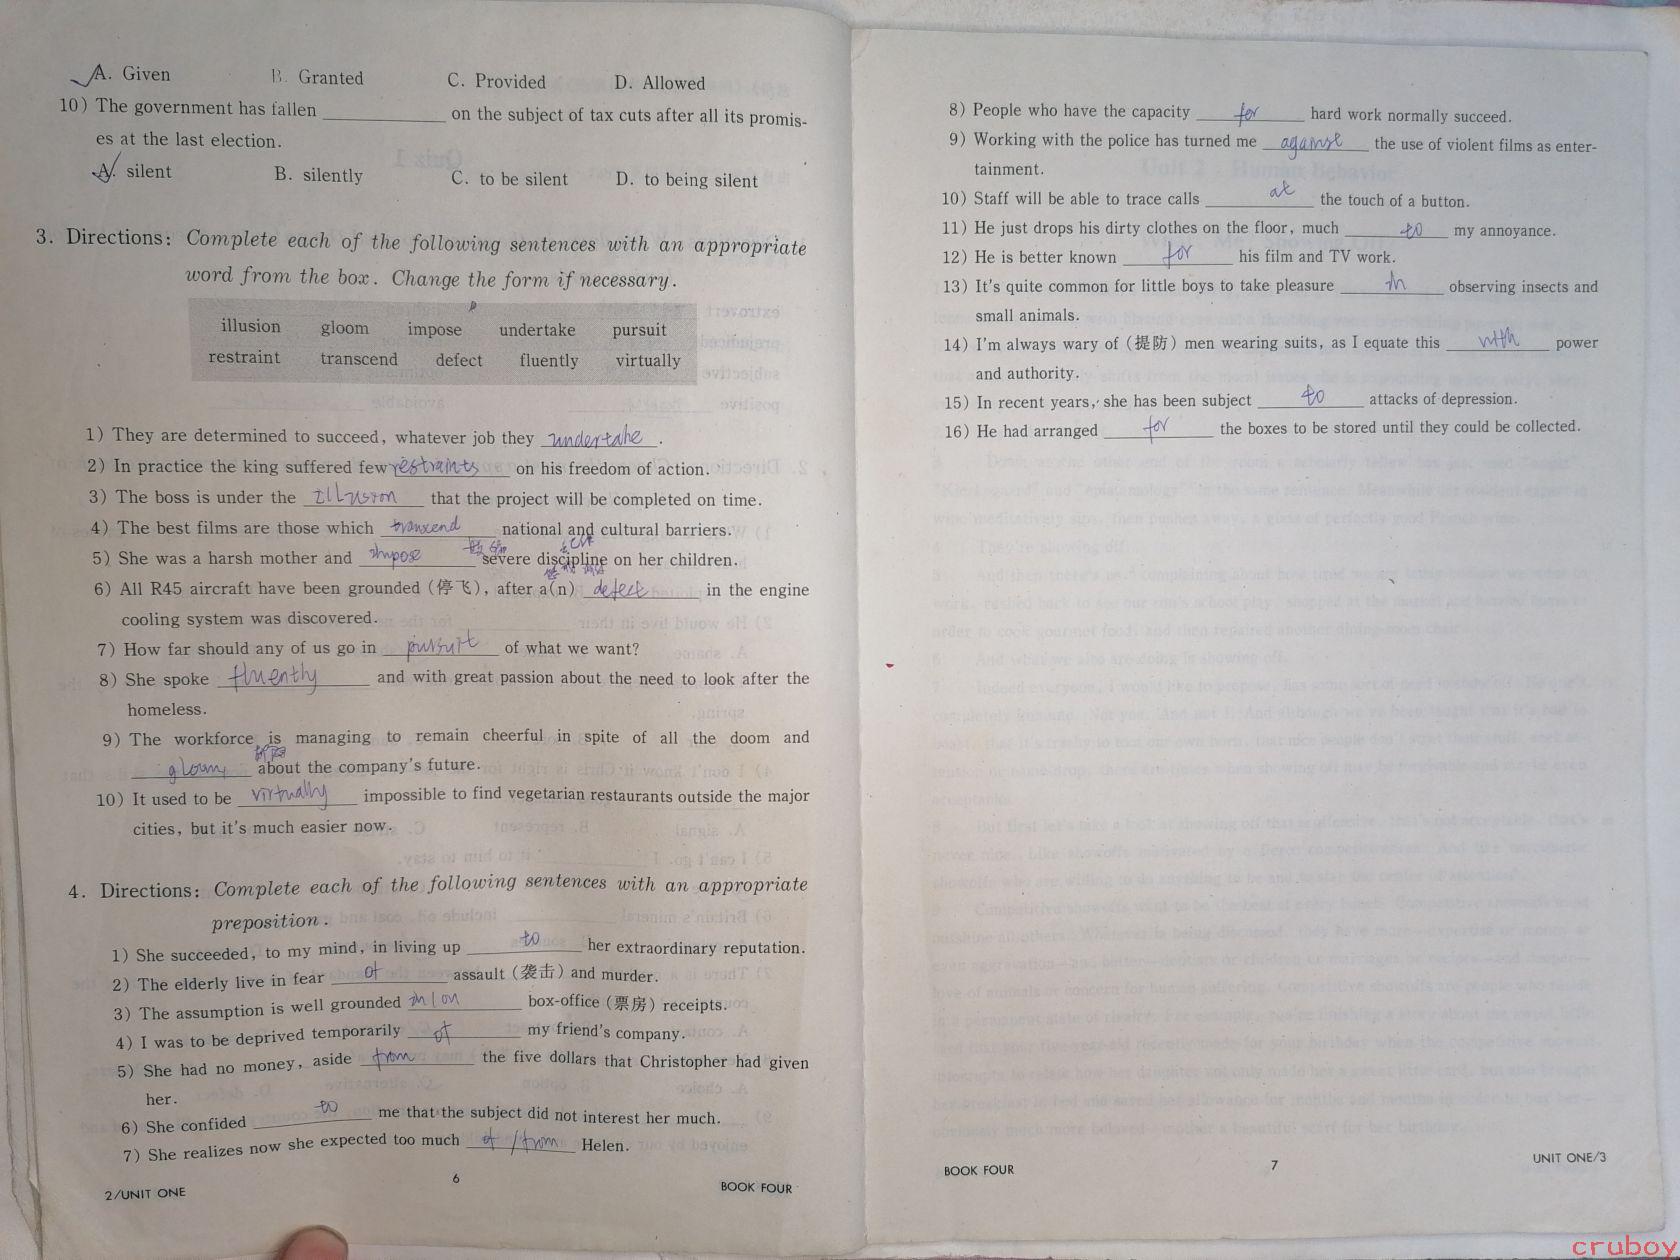 A. Given B. Granted C. Provided D. Allowed
10) The government has fallen ____________ on the subject of tax cuts after all its promis-
es at the last election.
A. silent B. silently C. to be silent D. to being silent
3. Directions: Complete each of the following sentences with an appropriate
word from the box. Change the form if necessary.
illusion gloom impose undertake pursuit
restraint transcend defect fluently virtually
1) They are determined to succeed, whatever job they undertake.
2) In practice the king suffered few restraints on his freedom of action.
3) The boss is under the illusion that the project will be completed on time.
4) The best films are those which transcend national and cultural barriers.
5) She was a harsh mother and impose severe discipline on her children.
6) All R45 aircraft have been grounded (停飞), after a(n) defect in the engine
cooling system was discovered.
7) How far should any of us go in pursuit of what we want?
8) She spoke fluently and with great passion about the need to look after the
homeless.
9) The workforce is managing to remain cheerful in spite of all the doom and
gloom about the company's future.
10) It used to be virtually impossible to find vegetarian restaurants outside the major
cities, but it's much easier now.
4. Directions: Complete each of the following sentences with an appropriate
preposition.
1) She succeeded, to my mind, in living up to her extraordinary reputation.
2) The elderly live in fear of assault (袭击) and murder.
3) The assumption is well grounded in/on box-office (票房) receipts.
4) I was to be deprived temporarily of my friend's company.
5) She had no money, aside from the five dollars that Christopher had given
her.
6) She confided to me that the subject did not interest her much.
7) She realizes now she expected too much of/from Helen.
2/UNIT ONE 6 BOOK FOUR
8) People who have the capacity for hard work normally succeed.
9) Working with the police has turned me against the use of violent films as enter-
tainment.
10) Staff will be able to trace calls at the touch of a button.
11) He just drops his dirty clothes on the floor, much to my annoyance.
12) He is better known for his film and TV work.
13) It's quite common for little boys to take pleasure in observing insects and
small animals.
14) I'm always wary of (提防) men wearing suits, as I equate this with power
and authority.
15) In recent years, she has been subject to attacks of depression.
16) He had arranged for the boxes to be stored until they could be collected.
BOOK FOUR 7 UNIT ONE/3
cruboy